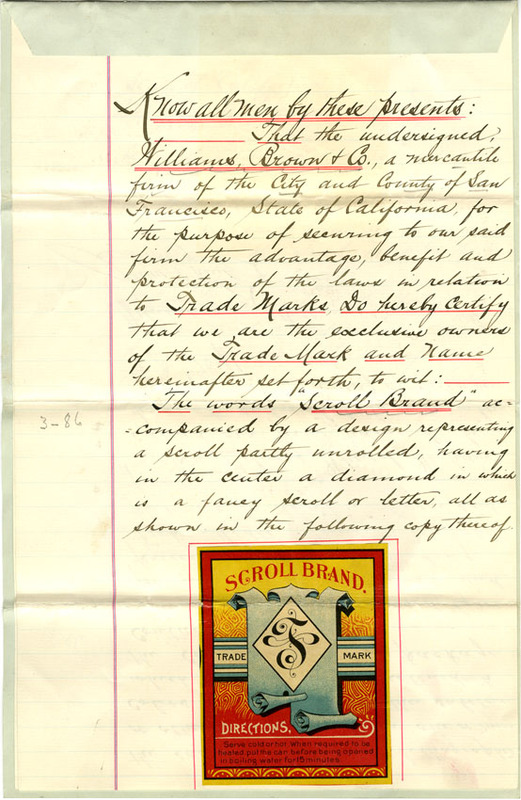 Know all men by these presents:
That the undersigned,
Williams, Brown & Co., a mercantile
firm of the City and County of San
Francisco, State of California, for
the purpose of securing to our said
firm the advantage, benefit and
protection of the laws in relation
to Trade Marks, Do hereby Certify
that we are the exclusive owners
of the Trade Mark and Name
hereinafter set forth, to wit:
The words "Scroll Brand" ac=
=companied by a design representing
a scroll partly unrolled, having
in the center a diamond in which
is a fancy scroll or letter, all as
shown in the following copy thereof.
3-86
SCROLL BRAND.
TRADE MARK
DIRECTIONS.
Serve cold or hot. When required to be
heated put the can before being opened
in boiling water for 15 minutes